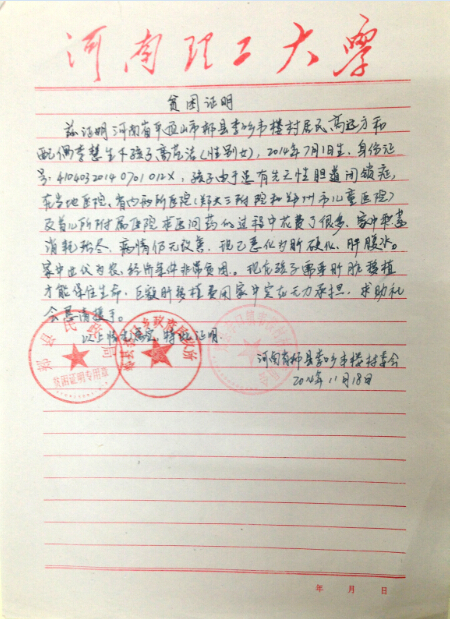 河南理工大学
贫困证明
兹证明河南省平顶山市郏县李口乡楼村居民高延方和
配偶李慧生下孩子高英洁(性别女),2014年7月1日生,身份证
号:410403201407 01012X,孩子由于患有先天性胆道闭锁症,
在当地医院、省内和所医院(郑大三附院和郑州市儿童医院)
及首儿所附属医院求医问药的过程中花费了很多,家中积蓄
消耗殆尽,病情仍无改善,现已恶化为肝硬化,肝腹水。
家中世代为农,经济条件非常贫困。现在孩子需要肝脏移植
才能保住生命,巨额肝移植费用家中实在无力承担,求助社
会恳请援手。
以上情况属实,特此证明.
郏县民政局
贫困证明专用章
河南省郏县李口乡楼村委会
2014年11月18日
年 月 日